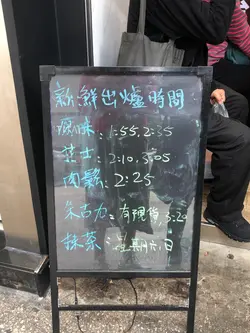 新鮮出爐時間
原味：1:55, 2:35
芝士：2:10, 3:05
肉鬆：2:25
朱古力：有現貨, 3:20
抹茶：星期六.日